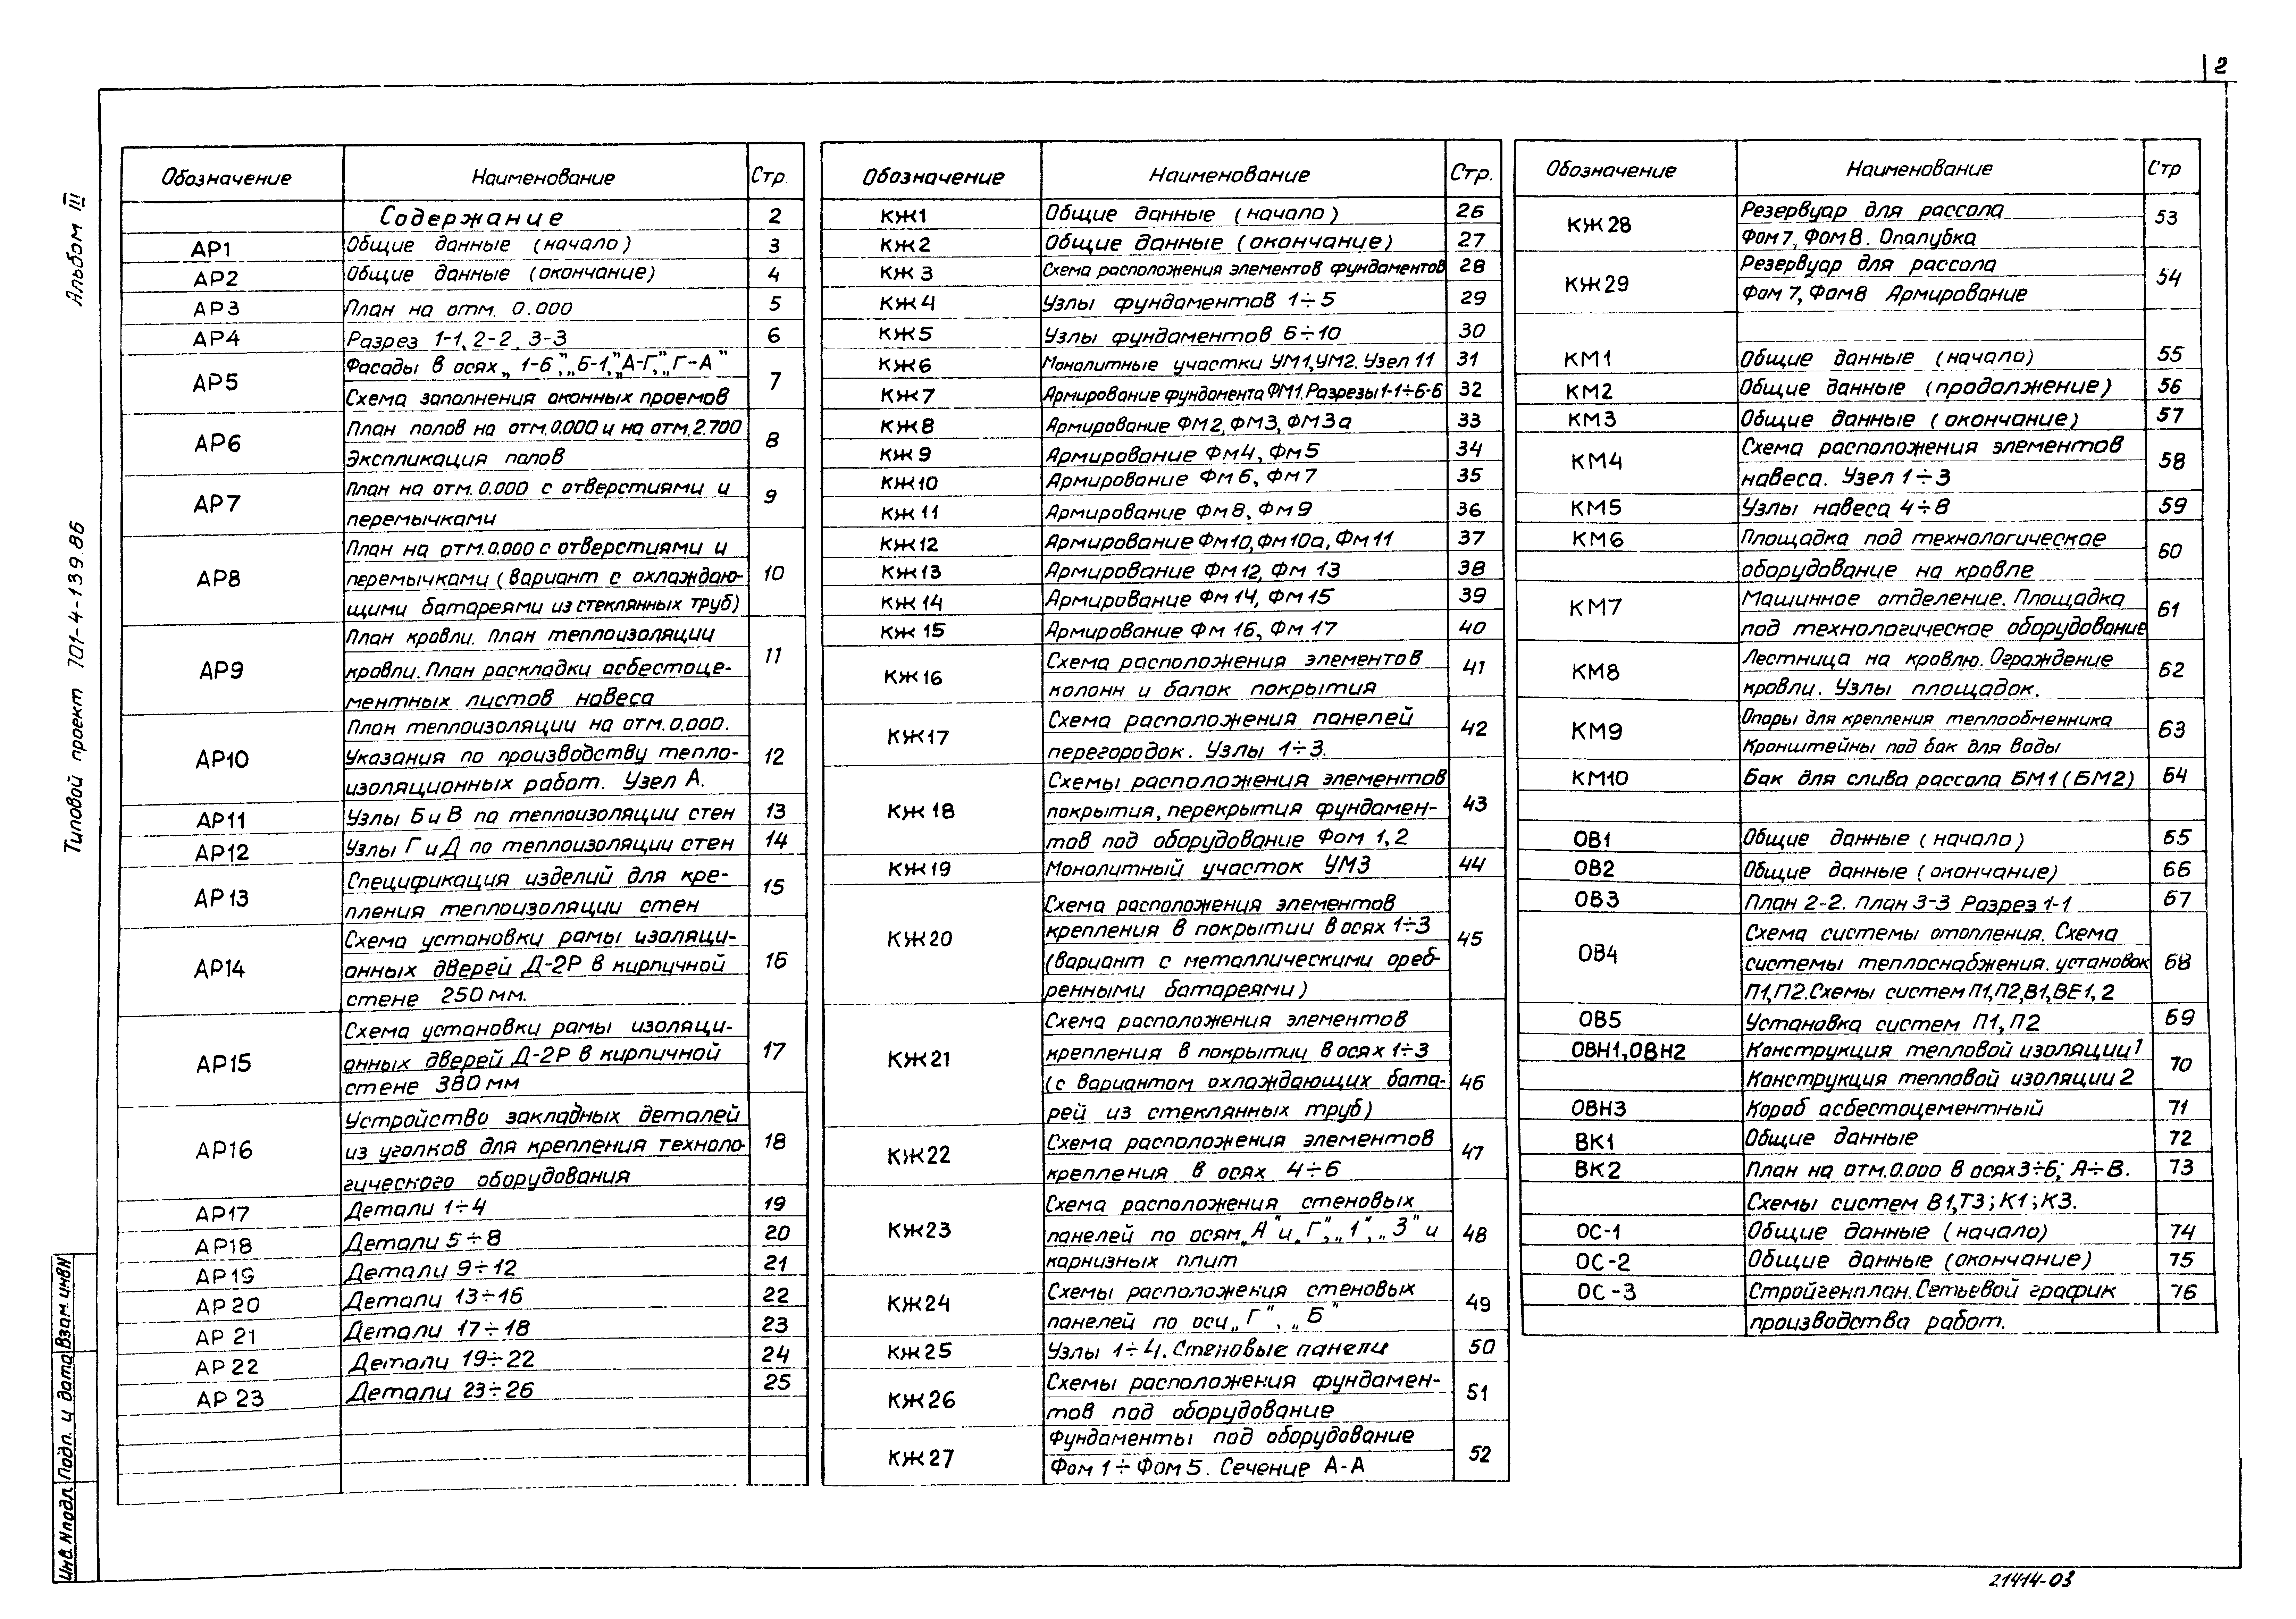 2
Альбом III
Типовой проект 701-4-139.86
Обозначение Наименование Стр.
Содержание 2
АР1 Общие данные (начало) 3
АР2 Общие данные (окончание) 4
АР3 План на отм. 0.000 5
АР4 Разрез 1-1, 2-2, 3-3 6
АР5 Фасады в осях „1-6”, „6-1”, „А-Г”, „Г-А” 7
Схема заполнения оконных проемов
АР6 План полов на отм. 0.000 и на отм. 2.700 8
Экспликация полов
АР7 План на отм. 0.000 с отверстиями и 9
перемычками
АР8 План на отм. 0.000 с отверстиями и
перемычками (вариант с охлаждаю- 10
щими батареями из стеклянных труб)
АР9 План кровли. План теплоизоляции 11
кровли. План раскладки асбестоце-
ментных листов навеса
АР10 План теплоизоляции на отм. 0.000.
Указания по производству тепло- 12
изоляционных работ. Узел А.
АР11 Узлы Б и В по теплоизоляции стен 13
АР12 Узлы Г и Д по теплоизоляции стен 14
АР13 Спецификация изделий для кре- 15
пления теплоизоляции стен
АР14 Схема установки рамы изоляци-
онных дверей Д-2Р в кирпичной 16
стене 250 мм.
АР15 Схема установки рамы изоляци-
онных дверей Д-2Р в кирпичной 17
стене 380 мм
АР16 Устройство закладных деталей
из уголков для крепления техноло- 18
гического оборудования
АР17 Детали 1÷4 19
АР18 Детали 5÷8 20
АР19 Детали 9÷12 21
АР20 Детали 13÷16 22
АР21 Детали 17÷18 23
АР22 Детали 19÷22 24
АР23 Детали 23÷26 25
Обозначение Наименование Стр.
КЖ1 Общие данные (начало) 26
КЖ2 Общие данные (окончание) 27
КЖ3 Схема расположения элементов фундаментов 28
КЖ4 Узлы фундаментов 1÷5 29
КЖ5 Узлы фундаментов 6÷10 30
КЖ6 Монолитные участки УМ1, УМ2. Узел 11 31
КЖ7 Армирование фундамента ФМ1. Разрезы 1-1÷6-6 32
КЖ8 Армирование ФМ2, ФМ3, ФМ3а 33
КЖ9 Армирование Фм4, Фм5 34
КЖ10 Армирование Фм6, Фм7 35
КЖ11 Армирование Фм8, Фм9 36
КЖ12 Армирование Фм10, Фм10а, Фм11 37
КЖ13 Армирование Фм12, Фм 13 38
КЖ14 Армирование Фм14, Фм15 39
КЖ15 Армирование Фм 16, Фм 17 40
КЖ16 Схема расположения элементов 41
колонн и балок покрытия
КЖ17 Схема расположения панелей 42
перегородок. Узлы 1÷3.
КЖ18 Схемы расположения элементов
покрытия, перекрытия фундамен- 43
тов под оборудование Фом 1,2
КЖ19 Монолитный участок УМ3 44
КЖ20 Схема расположения элементов
крепления в покрытии в осях 1÷3 45
(вариант с металлическими ореб-
ренными батареями)
КЖ21 Схема расположения элементов
крепления в покрытии в осях 1÷3
(с вариантом охлаждающих бата- 46
рей из стеклянных труб)
КЖ22 Схема расположения элементов 47
крепления в осях 4÷6
КЖ23 Схема расположения стеновых
панелей по осям „А” и „Г”, „1”, „3” и 48
карнизных плит
КЖ24 Схемы расположения стеновых 49
панелей по оси „Г”, „Б”
КЖ25 Узлы 1÷4. Стеновые панели 50
КЖ26 Схемы расположения фундамен- 51
тов под оборудование
КЖ27 Фундаменты под оборудование 52
Фом 1÷Фом 5. Сечение А-А
Обозначение Наименование Стр
КЖ28 Резервуар для рассола 53
Фом 7, Фом 8. Опалубка
КЖ29 Резервуар для рассола 54
Фом 7, Фом 8 Армирование
КМ1 Общие данные (начало) 55
КМ2 Общие данные (продолжение) 56
КМ3 Общие данные (окончание) 57
КМ4 Схема расположения элементов 58
навеса. Узел 1÷3
КМ5 Узлы навеса 4÷8 59
КМ6 Площадка под технологическое 60
оборудование на кровле
КМ7 Машинное отделение. Площадка 61
под технологическое оборудование
КМ8 Лестница на кровлю. Ограждение 62
кровли. Узлы площадок.
КМ9 Опоры для крепления теплообменника 63
Кронштейны под бак для воды
КМ10 Бак для слива рассола БМ1 (БМ2) 64
ОВ1 Общие данные (начало) 65
ОВ2 Общие данные (окончание) 66
ОВ3 План 2-2. План 3-3 Разрез 1-1 67
ОВ4 Схема системы отопления. Схема
системы теплоснабжения. установок 68
П1, П2. Схемы систем П1, П2, В1, ВЕ1, 2
ОВ5 Установка систем П1, П2 69
ОВН1, ОВН2 Конструкция тепловой изоляции 1 70
Конструкция тепловой изоляции 2
ОВН3 Короб асбестоцементный 71
ВК1 Общие данные 72
ВК2 План на отм. 0.000 в осях 3÷6; А÷В. 73
Схемы систем В1, Т3; К1; К3.
ОС-1 Общие данные (начало) 74
ОС-2 Общие данные (окончание) 75
ОС-3 Стройгенплан. Сетьевой график 76
производства работ.
Инв. N подл. Подп. и дата Взам. инв N
21414-03